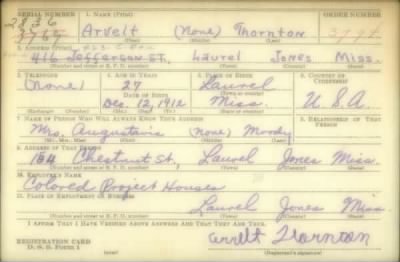 SERIAL NUMBER 1. NAME (Print) ORDER NUMBER
2836
3765 Arvelt (None) Thornton 3794
(First) (Middle) (Last)
2. ADDRESS (Print)
416 Jefferson ST. Laurel Jones Miss.
(Number and street or R. F. D. number) (Town) (County) (State)
3. TELEPHONE 4. AGE IN YEARS 5. PLACE OF BIRTH 6. COUNTRY OF CITIZENSHIP
(None) 27 Laurel
DATE OF BIRTH
Dec. 12, 1912 Miss. U.S.A.
(Exchange) (Number) (Mo.) (Day) (Yr.) (State or country)
7. NAME OF PERSON WHO WILL ALWAYS KNOW YOUR ADDRESS 8. RELATIONSHIP OF THAT PERSON
Mrs. Augustavis (None) Moody
(Mr., Mrs., Miss) (First) (Middle) (Last)
9. ADDRESS OF THAT PERSON
154 Chestnut St, Laurel Jones Miss.
(Number and street or R. F. D. number) (Town) (County) (State)
10. EMPLOYER'S NAME
Colored Project Houses
11. PLACE OF EMPLOYMENT OR BUSINESS
Laurel Jones Miss
(Number and street or R. F. D. number) (Town) (County) (State)
I AFFIRM THAT I HAVE VERIFIED ABOVE ANSWERS AND THAT THEY ARE TRUE.
REGISTRATION CARD
D. S. S. Form 1 Thornton
(Registrant's signature)